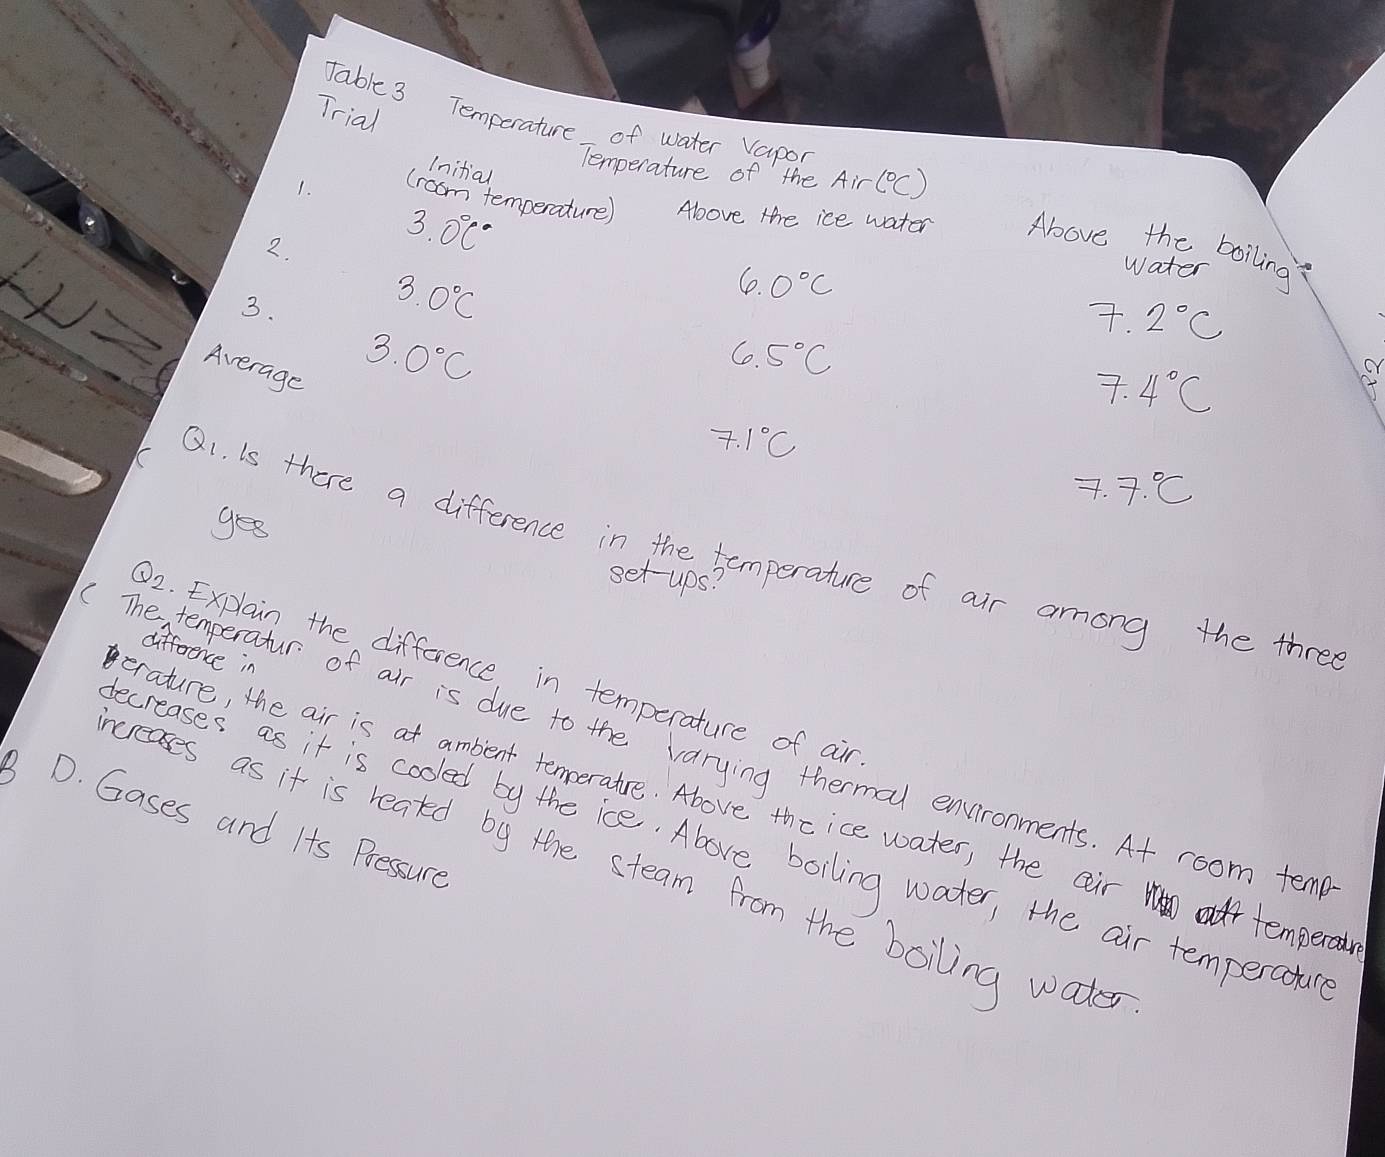 Table 3 Temperature of water Vapor
Trial Temperature of the Air (°C)
Initial (room temperature) Above the ice water Above the boiling water
1. 3.0°C 6.0°C 7.2°C
2. 3.0°C 6.5°C 7.4°C
3. 3.0°C 7.1°C 7.7.°C
Average
C Q1. Is there a difference in the temperature of air among the three
set-ups?
yes
Q2. Explain the difference in temperature of air.
C The difference in temperatur of air is due to the varying thermal environments. At room temp-
erature, the air is at ambient temperature. Above the ice water, the air temperature
decreases as it is cooled by the ice. Above boiling water, the air temperature
increases as it is heated by the steam from the boiling water.
B D. Gases and Its Pressure